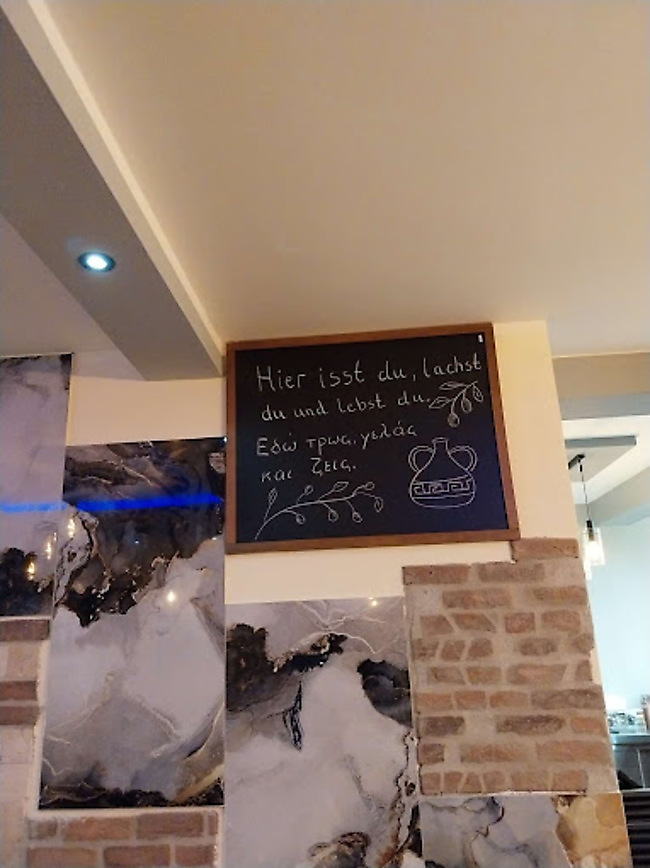 Hier isst du, lachst
du und lebst du.
Εδώ τρως, γελάς
και ζεις.